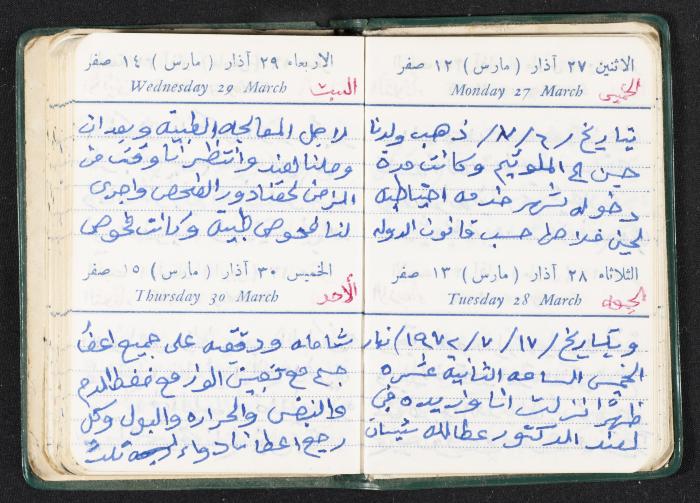 الاثنين ٢٧ آذار (مارس) ١٢ صفر
Monday 27 March
الخميس
بتاريخ / ٦ / ٧ / ذهب ولدنا
حسين الى الملوتيم وكانت مدة
دخوله شهر خدمه احتياطيه
لحين خلاصها حسب قانون الدوله
الثلاثاء ٢٨ آذار (مارس) ١٣ صفر
Tuesday 28 March
الجمعه
وبتاريخ / ١٧ / ٧ / ١٩٧٢) نهار
الخميس الساعه الثانية عشره
ظهرًا نزلت انا وزبيده
لعند الدكتور عطالله شيبان
الاربعاء ٢٩ آذار (مارس) ١٤ صفر
Wednesday 29 March
السبت
لاجل المعالجه الطبيه وبعد ان
وصلنا لعنده وانتظرنا وقت من
المرضى لحقنا دور الفحص واجرى
لنا فحوص طبية وكانت فحوص
الخميس ٣٠ آذار (مارس) ١٥ صفر
Thursday 30 March
الأحد
شامله ودقيقه على جميع اعضا
جسم مع الوزن مع ضغط الدم
والنبض والحراره والبول وكل
اعطانا دواء ثلث